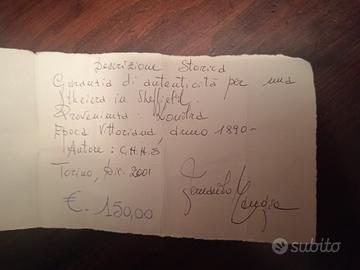 Descrizione Storica
Garanzia di autenticità per una
theiera in Sheffield.
Provenienza: Londra
Epoca Vittoriana, anno 1890-
Autore: C.H.H.S
Torino, Dic. 2001
€. 150,00
subito